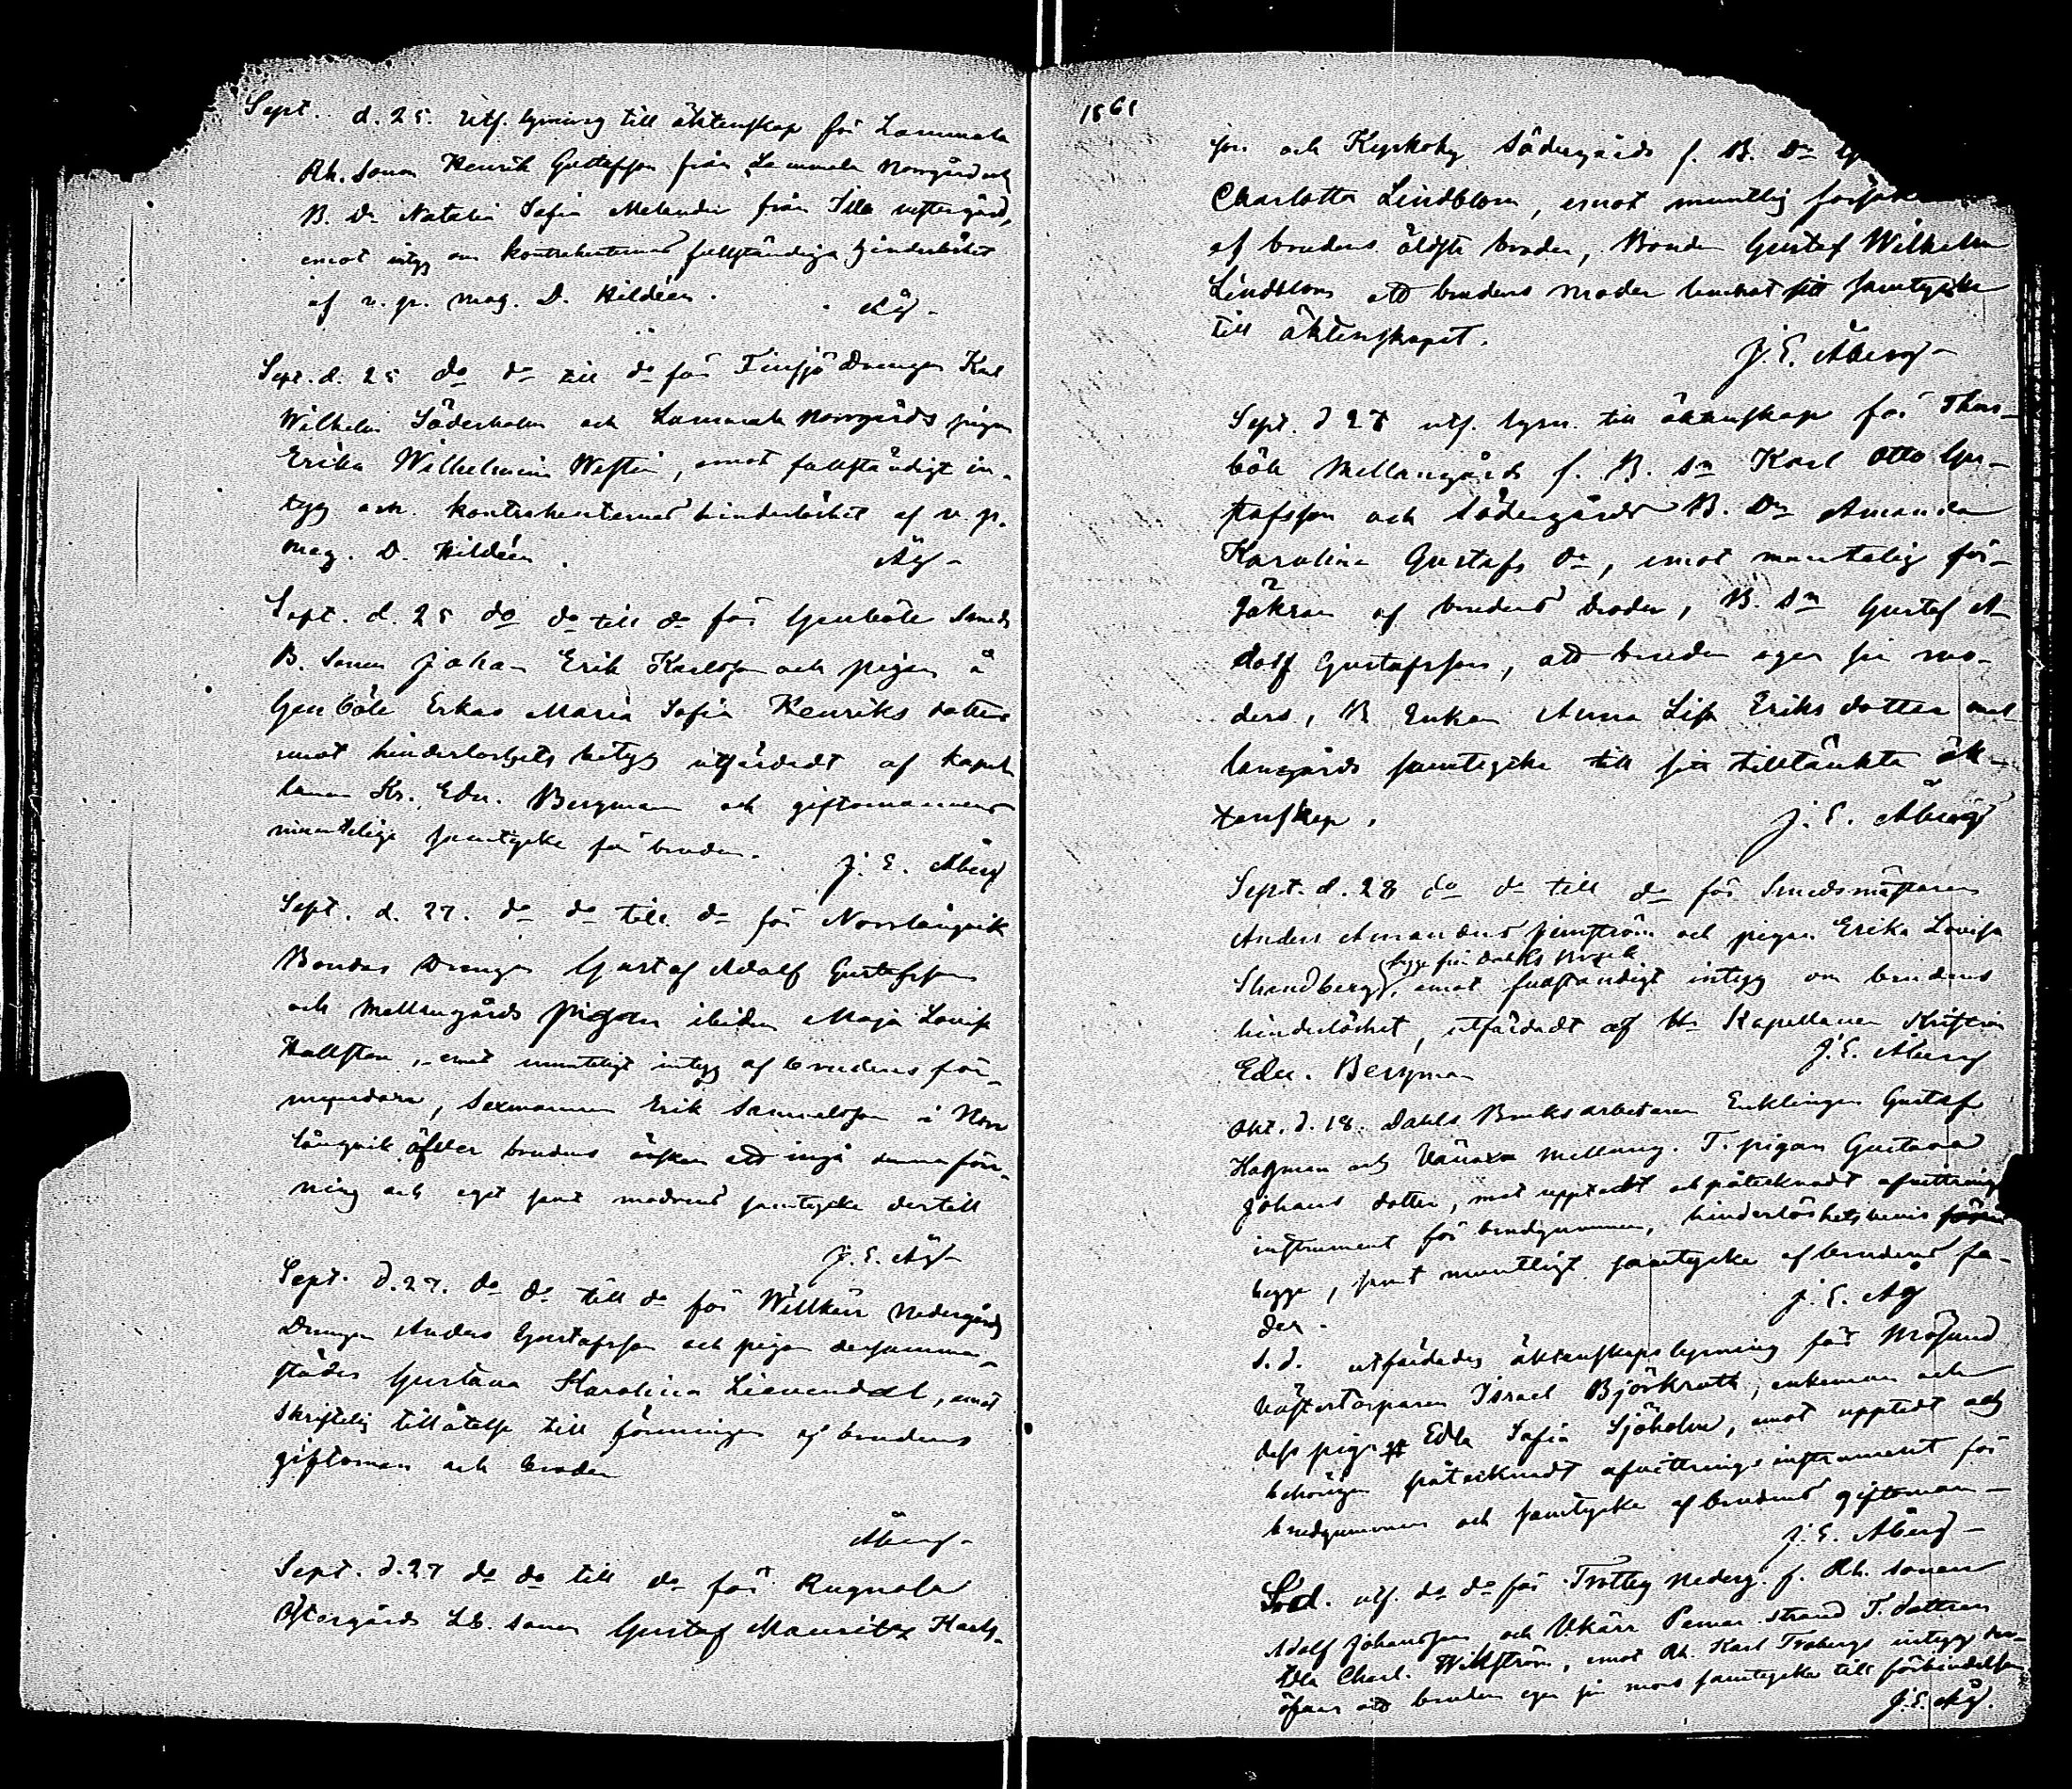 Sept. d. 25. Utf. lysning till äktenskap för Lammala
Rh. Sonen Henrik Gustafsson från Lammala Norrgård och
B. Dr Natalia Sofia Melander från Illo vestergård,
emot intyg om kontrahenternas fullständiga hinderlöshet
af v. p. mag. D. Hildéen.
Åbg
Sept. d. 25 do do till do för Finsjö Drengen Karl
Wilhelm Söderholm och Lammala Norrgårds pigan
Erika Wilhelmina Westin, emot fullständigt in-
tyg och kontrahenternas hinderlöshet af v. p.
mag. D. Hildéen.
Åbg
Sept. d. 25 do do till do för Genböle Smeds
B. Sonen Johan Erik Karlsson och pigan å
Genböle Erkas Maria Sofia Henriks dotter
emot hinderlöshets betyg utfärdadt af kapel-
lanen Kr. Edv. Bergman och giftomannens
muntelige samtycke för bruden.
J. E. Åberg
Sept. d. 27. do do till do för Norrlångvik
Bondas Drengen Gustaf Adolf Gustafsson
och Mellangårds pigan ibidem Maja Lovisa
Hallsten, emot munteligt intyg af brudens för-
myndare, Sexmannen Erik Samuelsson i Norr
långvik öfver brudens önskan att ingå denna före-
ning och eget samt modrens samtycke dertill
J. E. Åbg
Sept. d. 27. do do till do för Willkärr Nedergårds
Drengen Anders Gustafsson och pigan dersamma-
städes Gustava Karolina Lievendal, emot
skriftelig tillåtelse till föreningen af brudens
giftoman och broder
Åberg
Sept. d. 27 do do till do för Rugnola
Östergårds Lb. sonen Gustaf Mauritz Karls-
1861
son och Kyrkoby Södergårds f. B. Dr
Charlotta Lindblom, emot muntlig försäk
af brudens äldste broder, Bonden Gustaf Wilhelm
Lindblom att brudens moder lemnat sitt samtycke
till äktenskapet.
J. E. Åberg
Sept. d 27 utf. lysn. till äktenskap för Thors-
böle Mellangårds f. B. Sn Karl Otto Gu-
stafsson och Södergårds B. Dr Amanda
Karolina Gustafs Dr, emot muntelig för-
säkran af brudens broder, B. Sn Gustaf A-
dolf Gustafsson, att bruden eger sin mo-
ders, B. Enkan Anna Lisa Eriksdotter Mel-
langårds samtycke till sitt tilltänkta äk-
tenskap.
J. E. Åberg
Sept. d. 28 do do till do för Smedsmästaren
Anders Amandus Jernström och pigan Erika Lovisa
begge från Dahls bruk
Strandberg, emot fullständigt intyg om brudens
hinderlöshet, utfärdadt af Hr Kapellanen Kristian
Edv. Bergman
J. E. Åberg
Okt. d. 18. Dahls Bruksarbetaren Enklingen Gustaf
Hagman och Vänoxa Mellang. T. pigan Gustava
Johans dotter, mot upptedt och påtecknadt afvittrings
instrument för brudgummen, hinderlöshetsbevis
begge, samt muntligt samtycke af brudens fa-
der.
J. E. Åg
S. d. utfärdades äktenskapslysning för Mosund
Västertorparen Israel Björkroth, enkeman och
dess piga Edla Sofia Sjöholm, emot upptedt och
behörigen påtecknadt afvittringsinstrument för
brudgummen och samtycke af brudens giftoman
J. E. Åberg
S.d. utf. do do för Trotby Nederg. f. Rh. sonen
Adolf Johansson och Vkärr Pemar strand T. dottren
Edla Charl. Wikström, emot Rh. Karl Trobergs intyg der-
öfver att bruden eger sin mors samtycke till förbindelsen
J. E. Åbg.